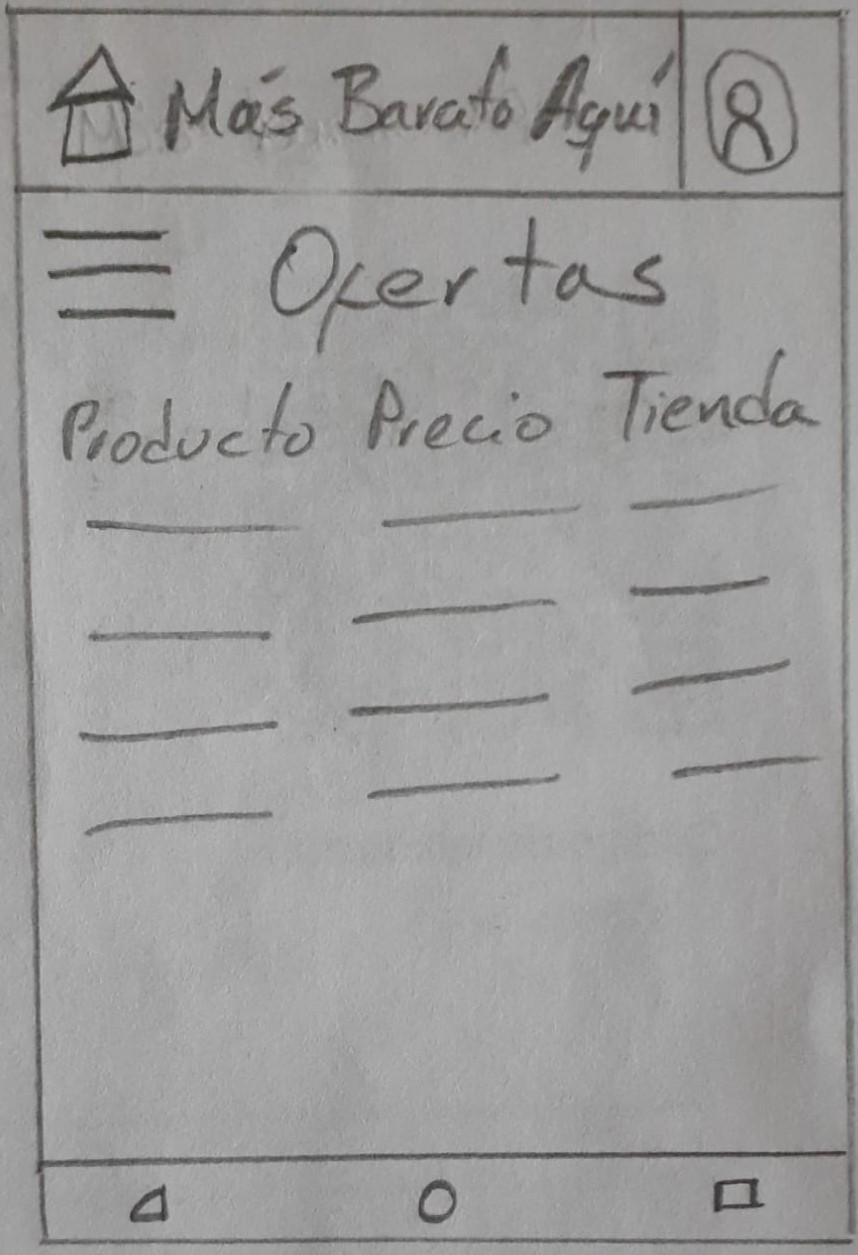 Más Barato Aquí
Ofertas
Producto Precio Tienda